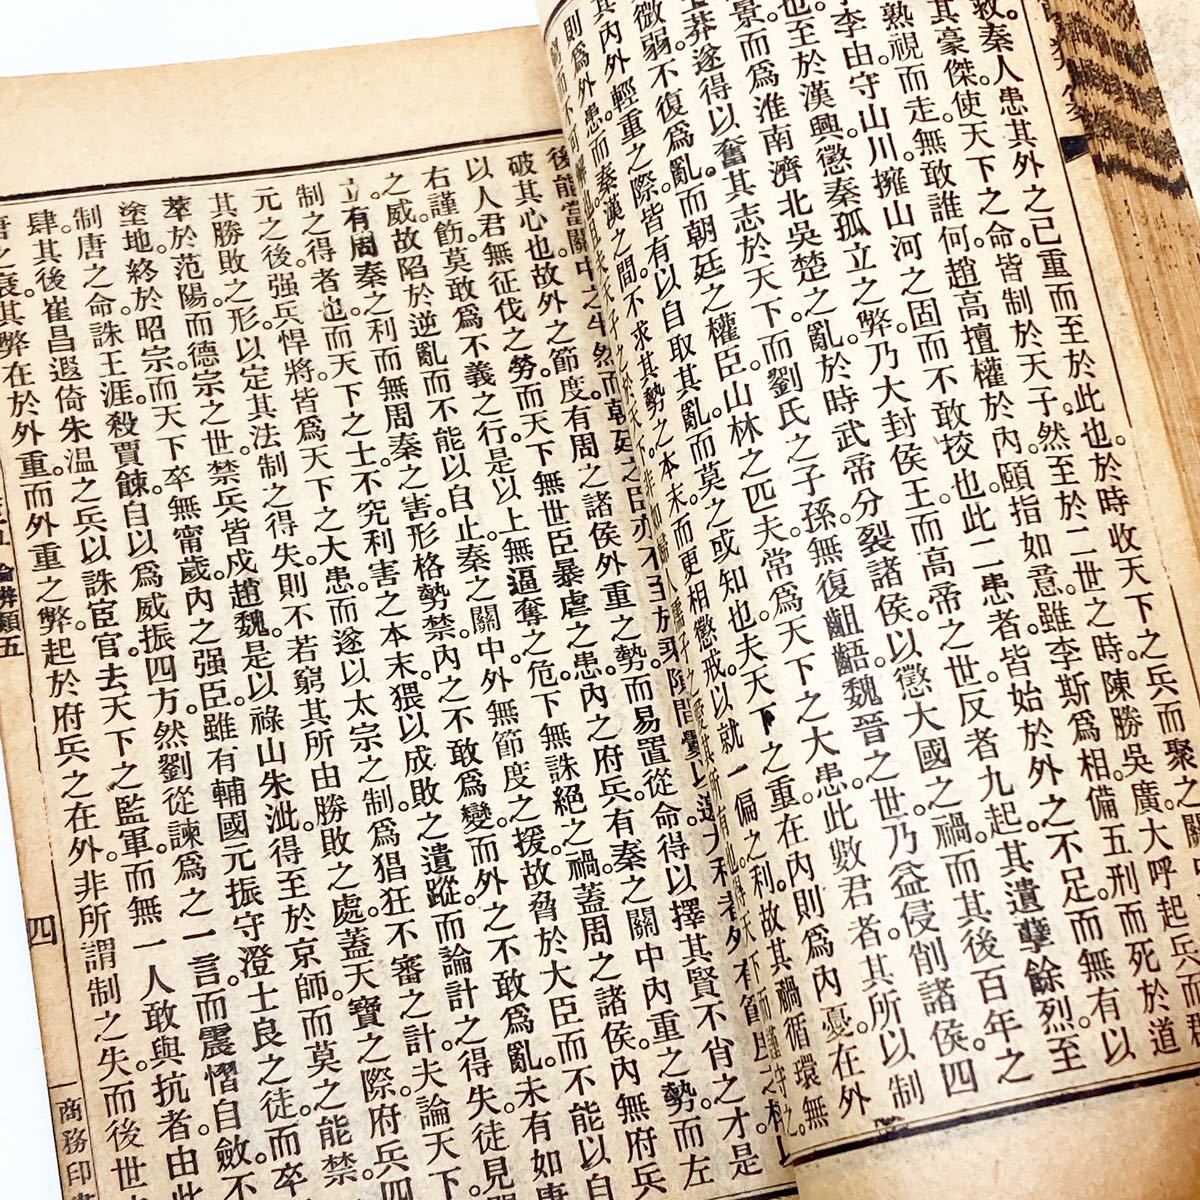 救。秦人患其外之已重而至於此也。於時收天下之兵而聚之關
其豪傑。使天下之命皆制於天子。然至於二世之時陳勝吳廣。大呼起兵而郡
熟視而走。無敢誰何趙高擅權於內。頤指如意。雖李斯爲相。備五刑而死於道
子李由守山川。擁山河之固而不敢挍也此二患者皆始於外之不足而無有以
也。至於漢興懲秦孤立之弊。乃大封侯王而高帝之世反者九起。其遺孽餘烈至
景而爲淮南濟北吳楚之亂於時武帝分裂諸侯。以懲大國之禍而其後百年之
王莽遂得以奮其志於天下。而劉氏之子孫無復齟齬魏晉之世乃益侵削諸侯。四
微弱。不復爲亂。而朝廷之權臣。山林之匹夫。常爲天下之大患。此數君者。其所以制
其內外輕重之際。皆有以自取其亂。而莫之或知也夫天下之重在內則爲內憂。在外
則爲外患。而秦漢之間不求其勢之本末。而更相懲戒以就一偏之利。故其禍循環無
後能當關中之半。然而朝廷之臣亦不至於
破其心也。故外之節度有周之諸侯外重之勢。而易置從命。得以擇其賢不肖之才是
以人君無征伐之勞。而天下無世臣暴虐之患。內之府兵有秦之關中內重之勢。而左
右謹飭。莫敢爲不義之行。是以上無逼奪之危。下無誅絕之禍。蓋周之諸侯。內無府兵
之威。故陷於逆亂而不能以自止。秦之關中。外無節度之援。故脅於大臣而不能以自
立。有周秦之利而無周秦之害。形格勢禁。內之不敢爲變。而外之不敢爲亂。未有如唐
制之得者也。而天下之士不究利害之本末。猥以成敗之遺蹤而論計之得失。徒見開
元之後。强兵悍將皆爲天下之大患。而遂以太宗之制爲猖狂不審之計夫論天下。
其勝敗之形。以定其法制之得失。則不若窮其所由勝敗之處。蓋天寶之際。府兵四
萃於范陽。而德宗之世。禁兵皆戍趙魏。是以祿山朱泚。得至於京師。而莫之能禁
塗地。終於昭宗。而天下卒無甯歲。內之强臣。雖有輔國元振守澄士良之徒。而卒
制唐之命。誅王涯殺賈餗。自以爲威振四方。然劉從諫爲之一言。而震慴自斂。不
肆。其後崔昌遐倚朱温之兵以誅宦官。去天下之監軍。而無一人敢與抗者。由此
唐之衰。其弊在於外重。而外重之弊。起於府兵之在外。非所謂制之失。而後世
論辨類五
四
商務印